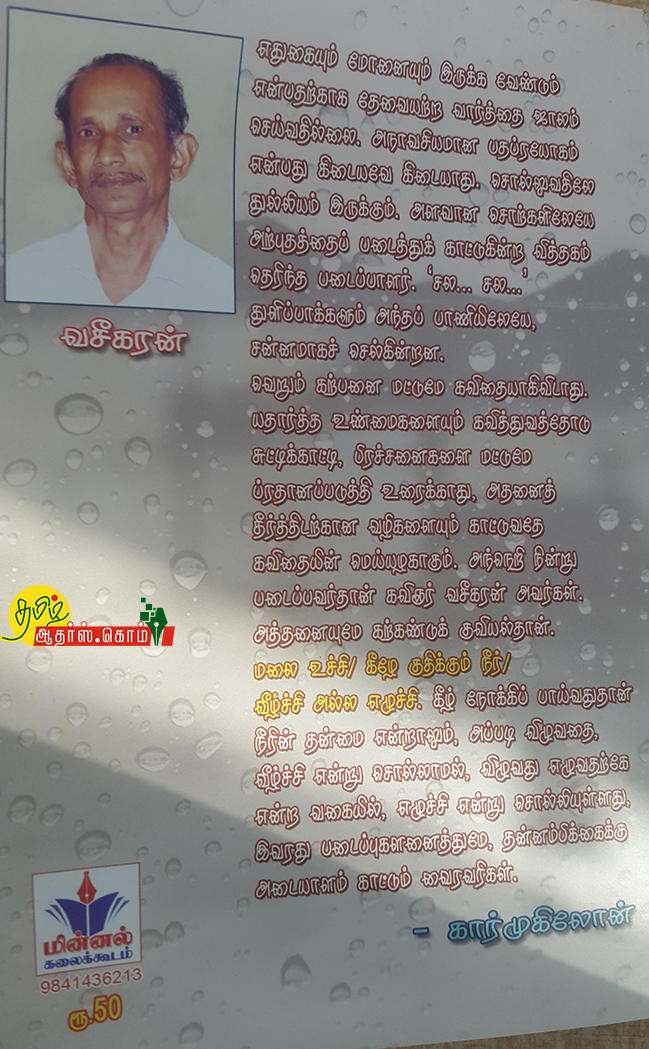 எதுகையும் மோனையும் இருக்க வேண்டும்
என்பதற்காக தேவையற்ற வார்த்தை ஜாலம்
செய்வதில்லை. அநாவசியமான பதப்ரயோகம்
என்பது கிடையவே கிடையாது. சொல்லுவதிலே
துல்லியம் இருக்கும். அளவான சொற்களிலேயே
அற்புதத்தைப் படைத்துக் காட்டுகின்ற வித்தகம்
தெரிந்த படைப்பாளர். ‘சல... சல...’
துளிப்பாக்களும் அந்தப் பாணியிலேயே,
சன்னமாகச் செல்கின்றன.
வெறும் கற்பனை மட்டுமே கவிதையாகிவிடாது.
யதார்த்த உண்மைகளையும் கவித்துவத்தோடு
சுட்டிக்காட்டி, பிரச்சனைகளை மட்டுமே
ப்ரதானப்படுத்தி உரைக்காது, அதனைத்
தீர்த்திடற்கான வழிகளையும் காட்டுவதே
கவிதையின் மெய்யழகாகும். அந்நெறி நின்று
படைப்பவர்தான் கவிஞர் வசீகரன் அவர்கள்.
அத்தனையுமே கற்கண்டுக் குவியல்தான்.
மலை உச்சி/ கீழே குதிக்கும் நீர்/
வீழ்ச்சி அல்ல எழுச்சி. கீழ் நோக்கிப் பாய்வதுதான்
நீரின் தன்மை என்றாலும், அப்படி விழுவதை,
வீழ்ச்சி என்று சொல்லாமல், விழுவது எழுவதற்கே
என்ற வகையில், எழுச்சி என்று சொல்லியுள்ளது,
இவரது படைப்புகளனைத்துமே, தன்னம்பிக்கைக்கு
அடையாளம் காட்டும் வைரவரிகள்.
- கார்முகிலோன்
வசீகரன்
தமிழ்
ஆதர்ஸ்.கொம்
மின்னல்
கலைக்கூடம்
9841436213
ரூ.50